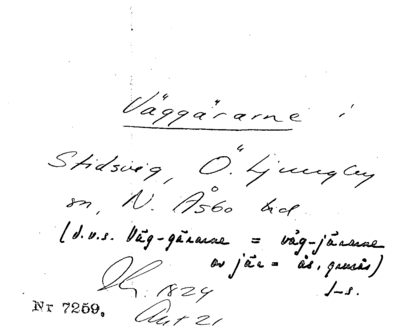 Väggärarne i
Stidsvig, Ö. Ljungby
sn, N. Åsbo hd.
(d.v.s. Väg-gärarne = väg-järarne
av jär = ås, grusås)
J-s.
1824
Nr 7259. Akt 21